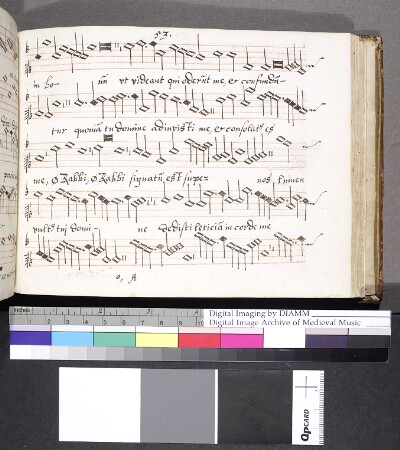 53.
in bo- nū vt videant qui oderūt me, et confundū-
tur quoniā tu domine adiuvisti me, et consolat⁹ es
me, O Rabbi, O Rabbi signatū est super nos, lumen
vult⁹ tui domi- ne dedisti leticiā in corde me
o, A
inches 1 2 3 4
Digital Imaging by DIAMM
Digital Image Archive of Medieval Music
QPCARD